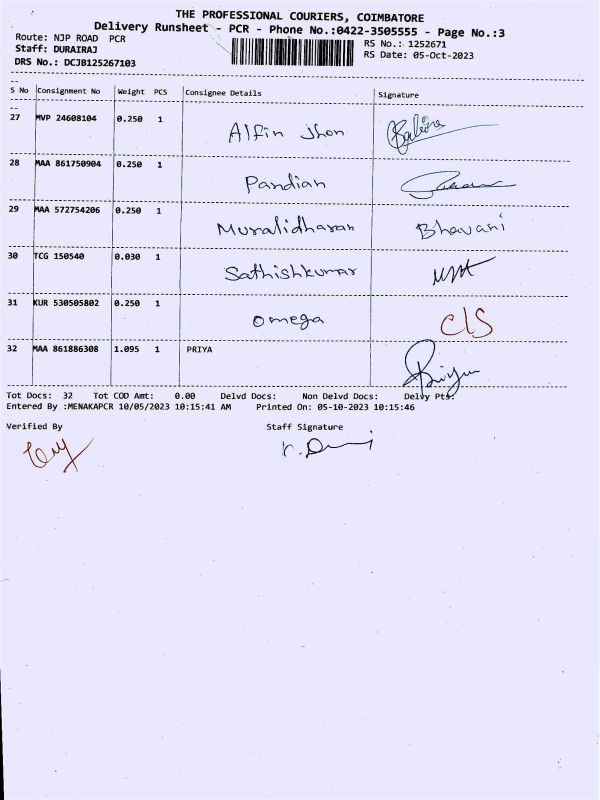 THE PROFESSIONAL COURIERS, COIMBATORE
Delivery Runsheet - PCR - Phone No.:0422-3505555 - Page No.:3
Route: NJP ROAD PCR
RS No.: 1252671
Staff: DURAIRAJ
RS Date: 05-Oct-2023
DRS No.: DCJB125267103
S No Consignment No Weight PCS Consignee Details Signature
27 MVP 24608104 0.250 1 Alfin Jhon
28 MAA 861750904 0.250 1 Pandian
29 MAA 572754206 0.250 1 Muralidharan Bhavani
30 TCG 150540 0.030 1 Sathishkumar
31 KUR 530505802 0.250 1 Omega CLS
32 MAA 861886308 1.095 1 PRIYA
Tot Docs: 32 Tot COD Amt: 0.00 Delvd Docs: Non Delvd Docs: Delvy Pts:
Entered By :MENAKAPCR 10/05/2023 10:15:41 AM Printed On: 05-10-2023 10:15:46
Verified By Staff Signature